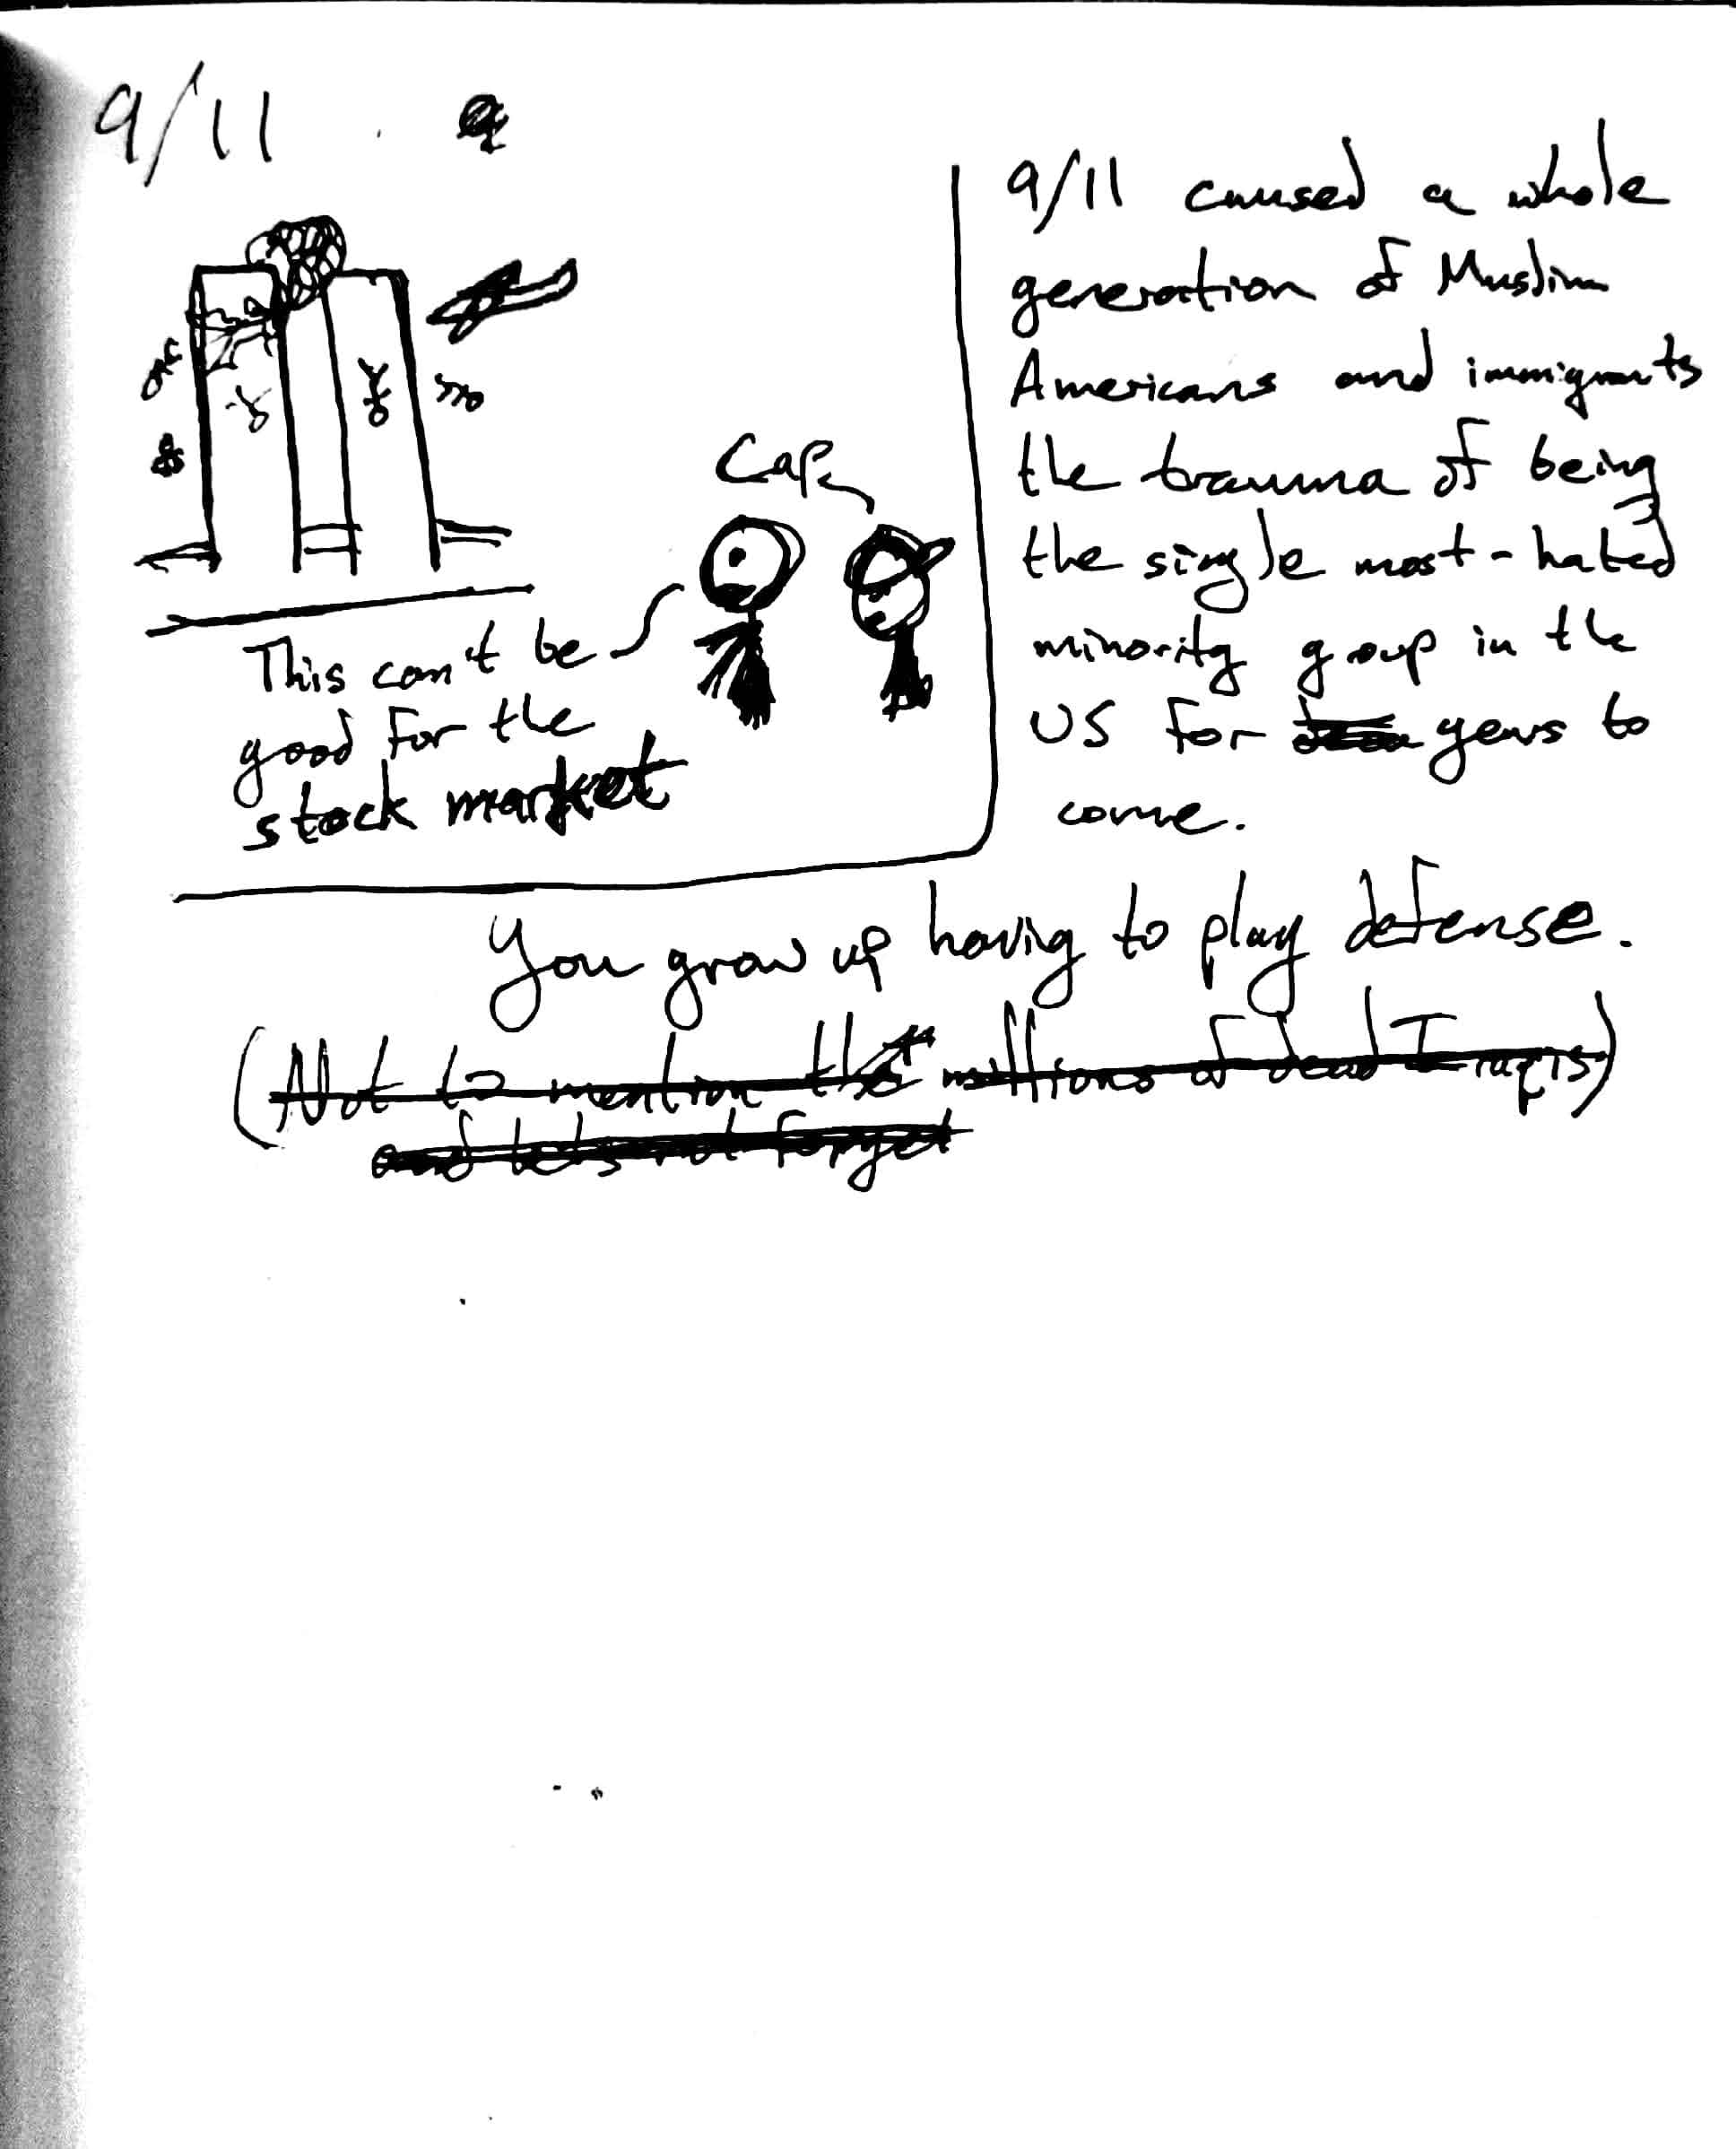 9/11
Cap
This can't be
good for the
stock market
9/11 caused a whole
generation of Muslim
Americans and immigrants
the trauma of being
the single most-hated
minority group in the
US for years to
come.
You grow up having to play defense.
(Not to mention the millions of dead Iraqis)
and let's not forget